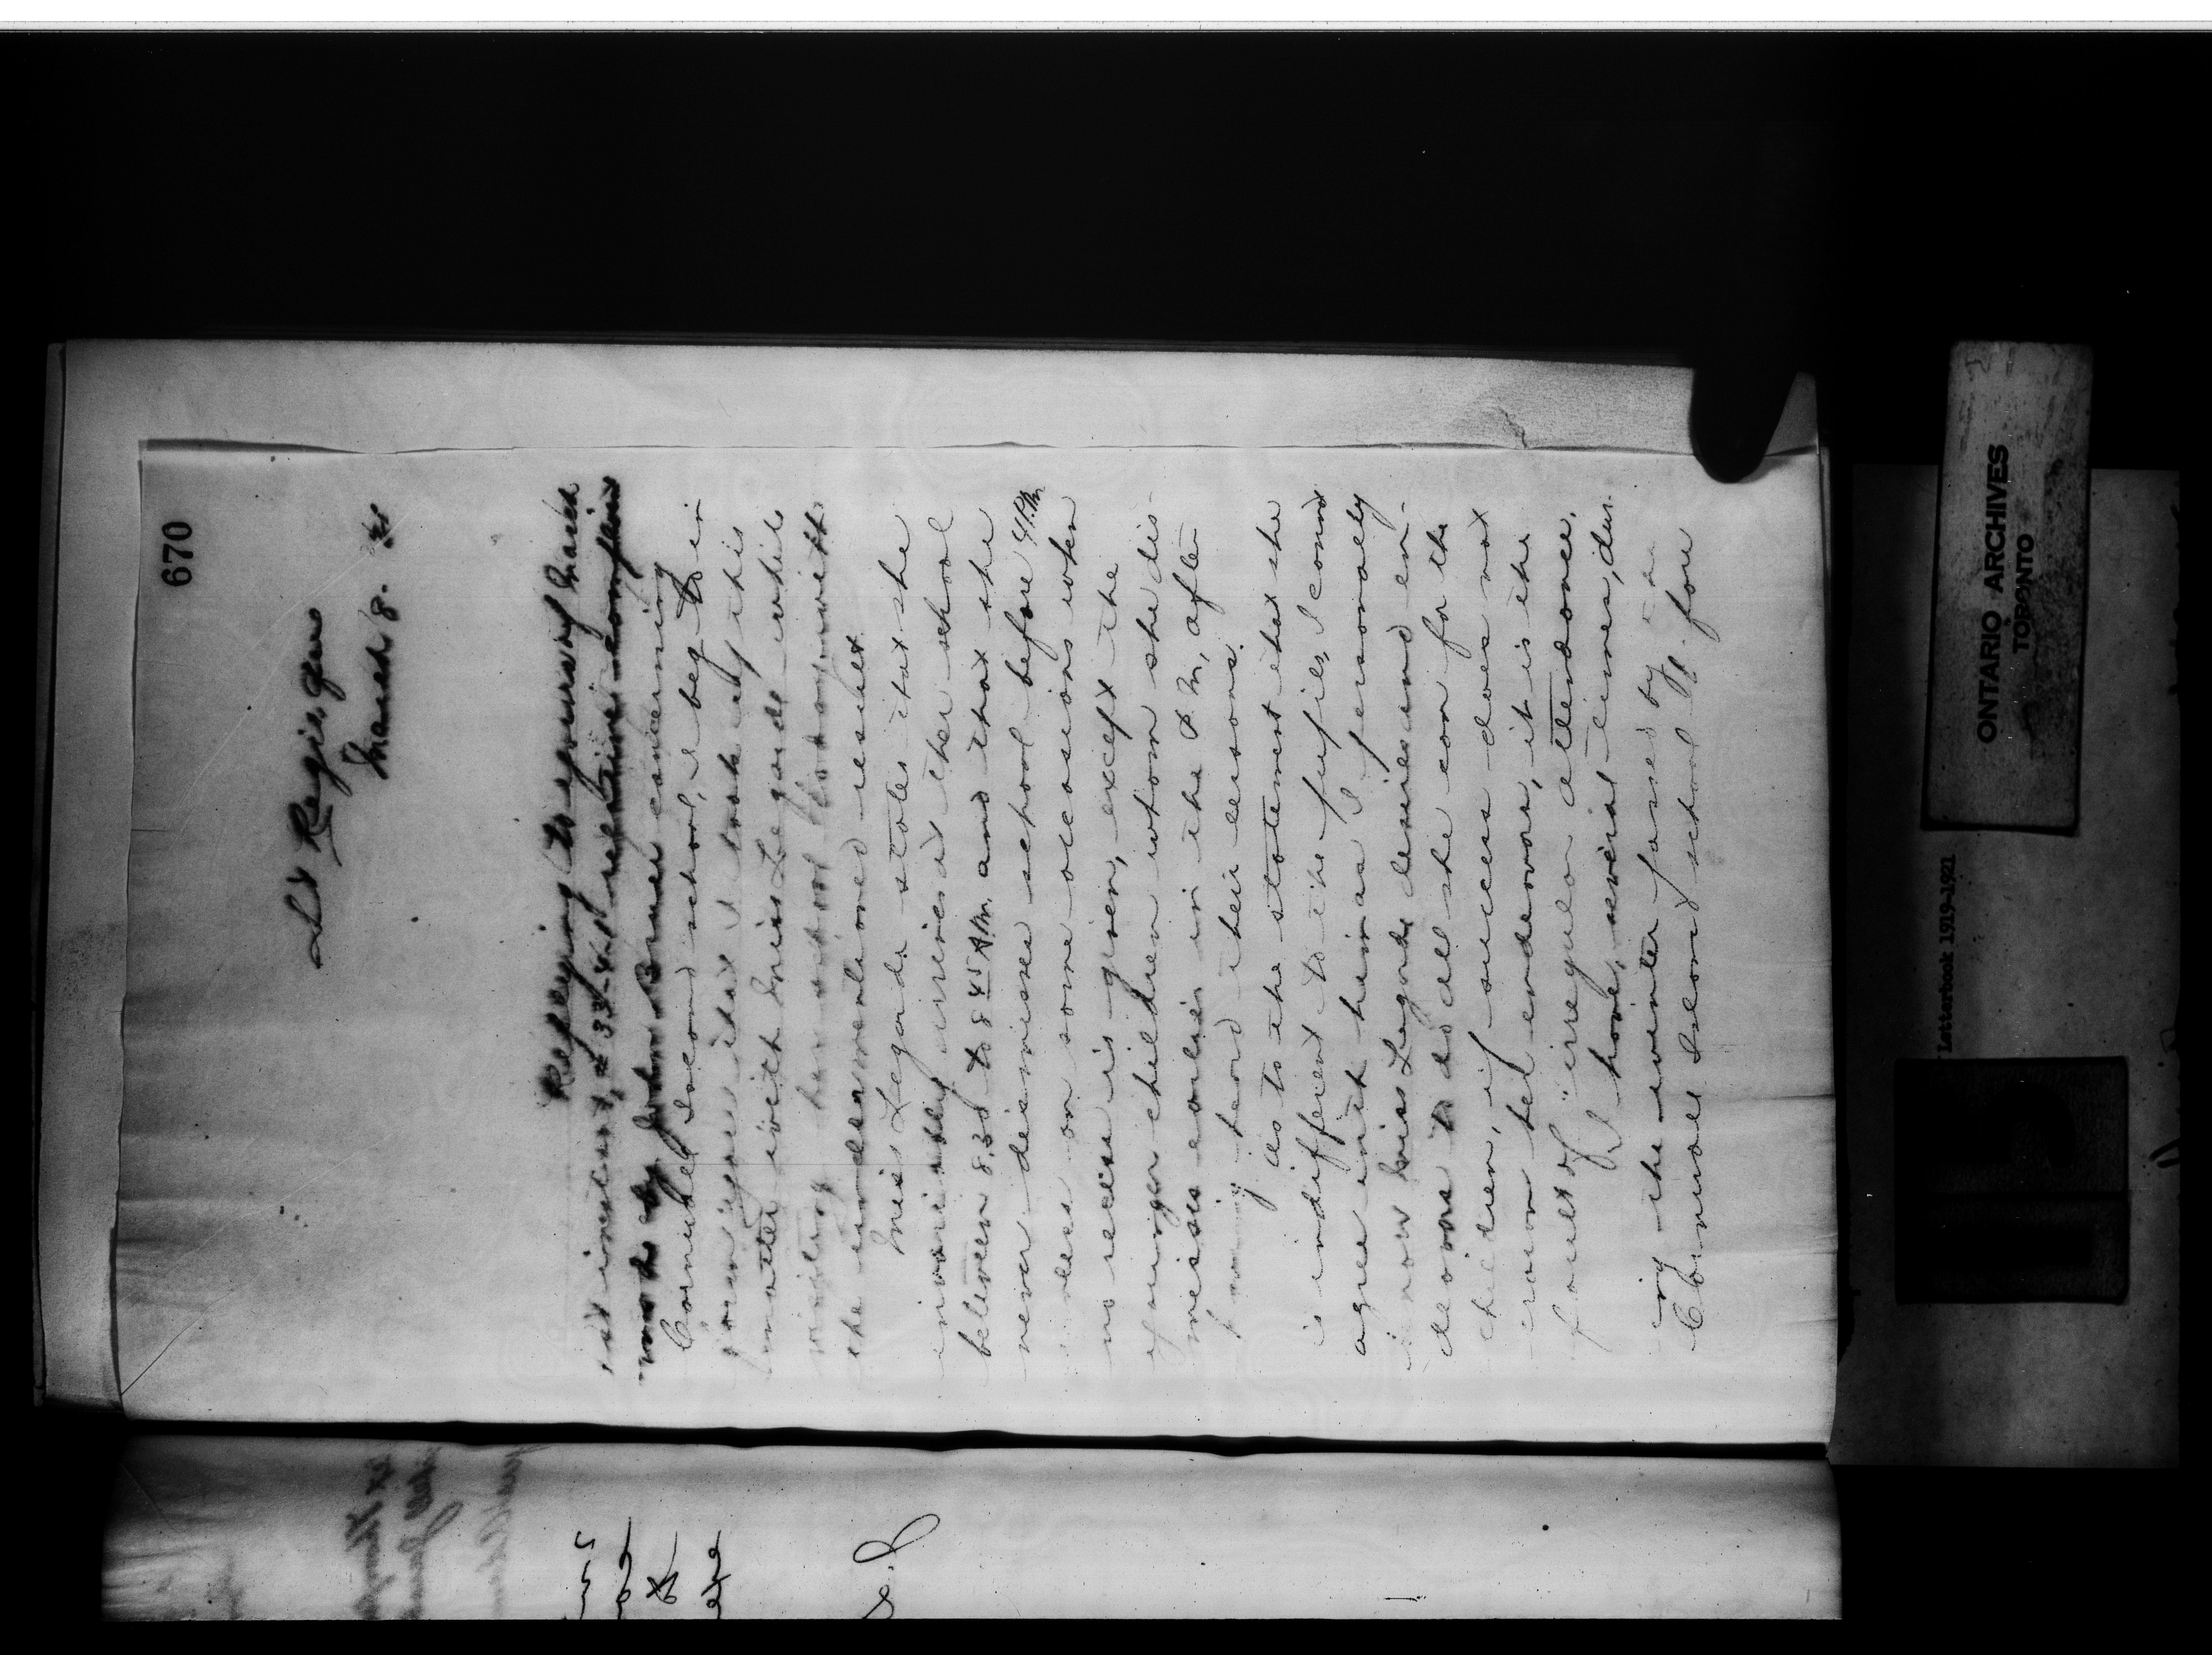 670
St Regis Que
March 8.
Referring to yours of March
1st instant, # 33-4, relative complaint
made by John Bruner concerning
Cornwall Island school, I beg to in
form you that I took up this
matter with Miss Legarde while
visiting her school to-day, with
the undermentioned result
Miss Legarde states that she
invariably arrives at the school
between 8.30 to 8 45 A.M. and that she
never dismisses school before 4 P.M.
unless on some occasions when
no recess is given, except the
younger children whom she dis-
misses earlier in the P.M, after
having heard their lessons.
As to the statement that she
is indifferent to the pupils, I cannot
agree with him as I personally
know Miss Legarde desires and en-
deavors to do all she can for the
children, if success does not
crown her endeavors, it is the
fault of "irregular attendance.
I have, several times, dur-
ing the winter passed by
Cornwall Island school
ONTARIO ARCHIVES
TORONTO
Letterbook 1919-1921